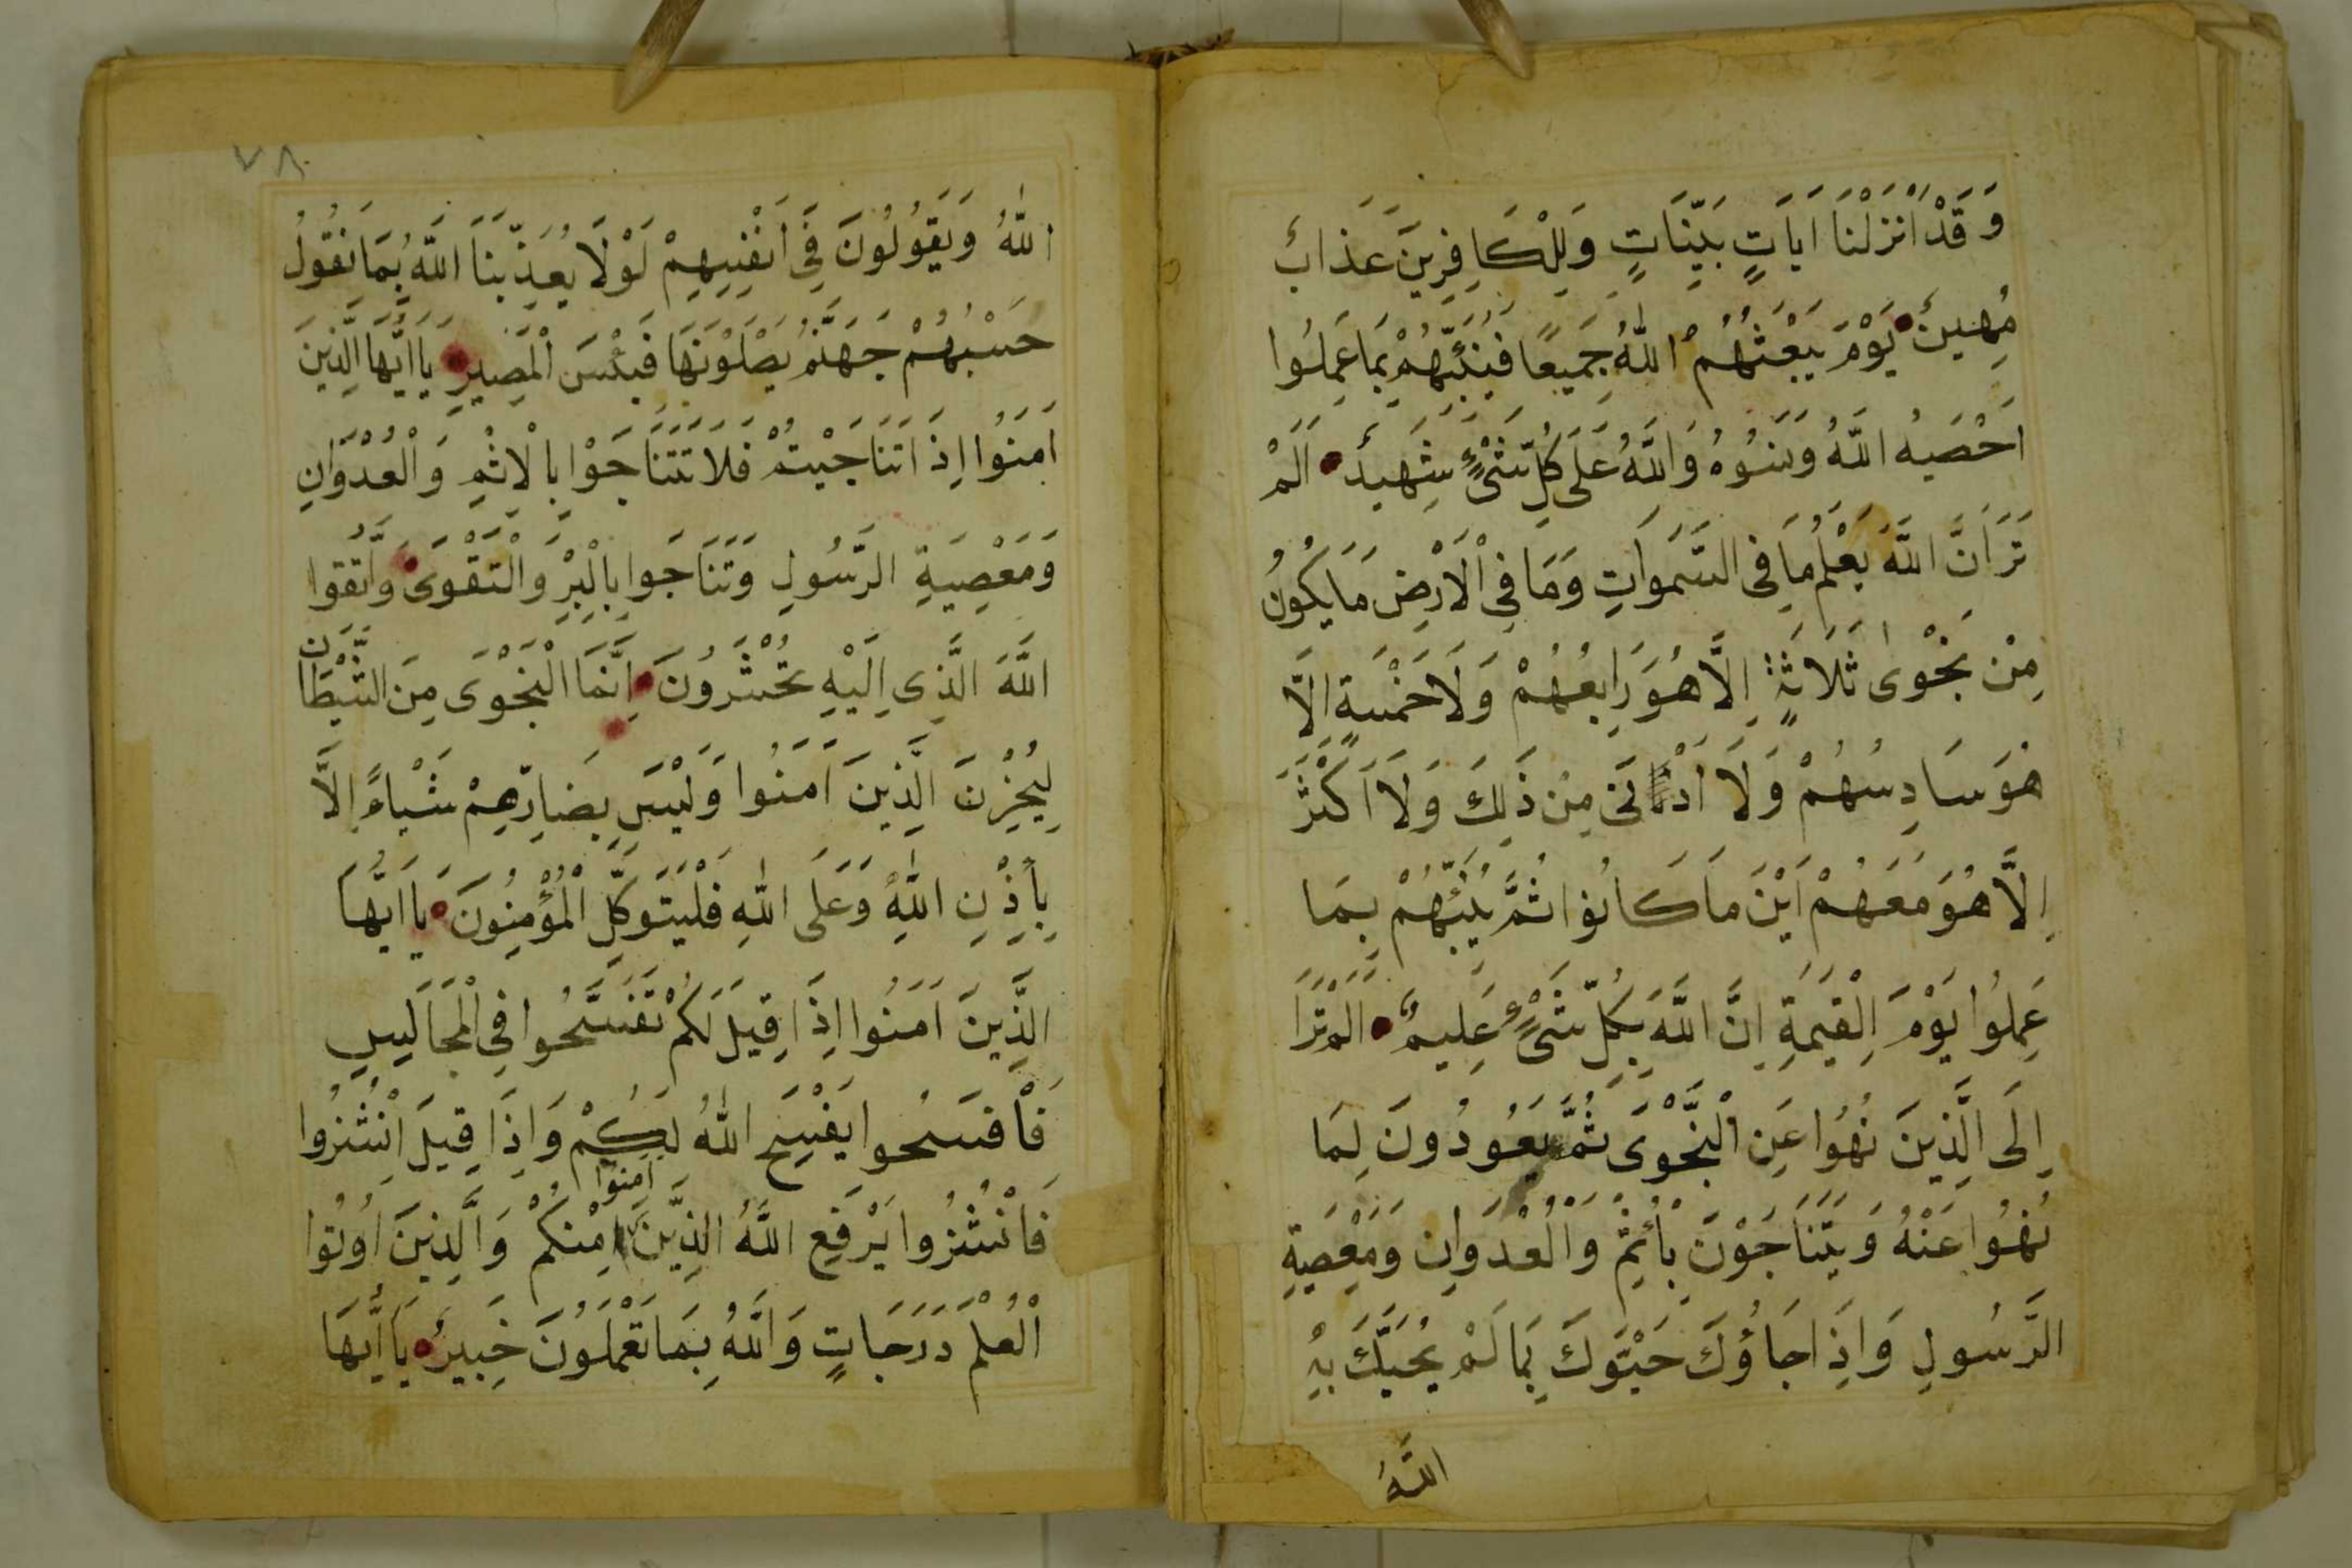 وَقَدْ اَنْزَلْنَا اٰيَاتٍ بَيِّنَاتٍ وَلِلْكَافِرِينَ عَذَابٌ
مُهِينٌ يَوْمَ يَبْعَثُهُمُ اللّٰهُ جَمِيعًا فَيُنَبِّئُهُمْ بِمَا عَمِلُوا
اَحْصَيهُ اللّٰهُ وَنَسُوهُ وَاللّٰهُ عَلَى كُلِّ شَىْءٍ شَهِيدٌ اَلَمْ
تَرَ اَنَّ اللّٰهَ يَعْلَمُ مَا فِى السَّمَوَاتِ وَمَا فِى الْاَرْضِ مَا يَكُونُ
مِنْ نَجْوٰى ثَلَاثَةٍ اِلَّا هُوَ رَابِعُهُمْ وَلَا خَمْسَةٍ اِلَّا
هُوَ سَادِسُهُمْ وَلَا اَدْنٰى مِنْ ذَلِكَ وَلَا اَكْثَرَ
اِلَّا هُوَ مَعَهُمْ اَيْنَ مَا كَانُوا ثُمَّ يُنَبِّئُهُمْ بِمَا
عَمِلُوا يَوْمَ الْقِيٰمَةِ اِنَّ اللّٰهَ بِكُلِّ شَىْءٍ عَلِيمٌ اَلَمْ تَرَ
اِلَى الَّذِينَ نُهُوا عَنِ النَّجْوَى ثُمَّ يَعُودُونَ لِمَا
نُهُوا عَنْهُ وَيَتَنَاجَوْنَ بِأُثِمْ وَالْعُدْوَانِ وَمَعْصِيَةِ
الرَّسُولِ وَاِذَا جَاؤُكَ حَيَّوْكَ بِمَا لَمْ يُحَيِّكَ بِهِ
اللّٰهُ
٧٨
اللّٰهُ وَيَقُولُونَ فِى اَنْفُسِهِمْ لَوْلَا يُعَذِّبُنَا اللّٰهُ بِمَا نَقُولُ
حَسْبُهُمْ جَهَنَّمُ يَصْلَوْنَهَا فَبِئْسَ الْمَصِيرِ يَا اَيُّهَا الَّذِينَ
اٰمَنُوا اِذَا تَنَاجَيْتُمْ فَلَا تَتَنَاجَوْا بِالْاِثْمِ وَالْعُدْوَانِ
وَمَعْصِيَةِ الرَّسُولِ وَتَنَاجَوا بِالْبِرِّ وَالْتَقْوَى وَاتَّقُوا
اللّٰهَ الَّذِى اِلَيْهِ تُحْشَرُونَ اِنَّمَا النَّجْوَى مِنَ الشَّيْطَانِ
لِيُحْزِنَ الَّذِينَ اٰمَنُوا وَلَيْسَ بِضَارِّهِمْ شَيْاءً اِلَّا
بِأِذْنِ اللّٰهِ وَعَلَى اللّٰهِ فَلْيَتَوَكَّلِ الْمُؤْمِنُونَ يَا اَيُّهَا
الَّذِينَ اٰمَنُوا اِذَا قِيلَ لَكُمْ تَفَسَّحُوا فِى الْمَجَالِسِ
فَافْسَحُوا يَفْسَحِ اللّٰهُ لَكُمْ وَاِذَا قِيلَ انْشُزُوا
فَانْشُزُوا يَرْفَعِ اللّٰهُ الَّذِينَ اٰمَنُوا مِنْكُمْ وَالَّذِينَ اُوتُوا
الْعُلْمَ دَرَجَاتٍ وَاللّٰهُ بِمَا تَعْمَلُونَ خَبِيرٌ يَا اَيُّهَا